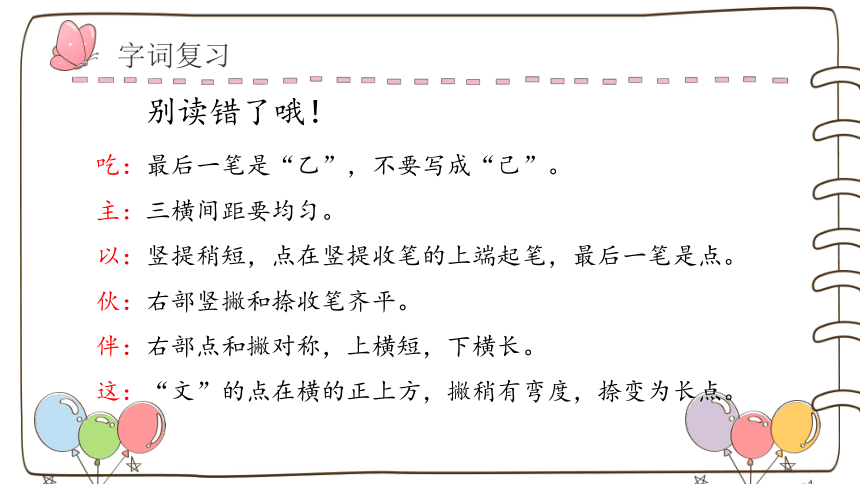 字词复习
别读错了哦！
吃：最后一笔是“乙”，不要写成“己”。
主：三横间距要均匀。
以：竖提稍短，点在竖提收笔的上端起笔，最后一笔是点。
伙：右部竖撇和捺收笔齐平。
伴：右部点和撇对称，上横短，下横长。
这：“文”的点在横的正上方，撇稍有弯度，捺变为长点。